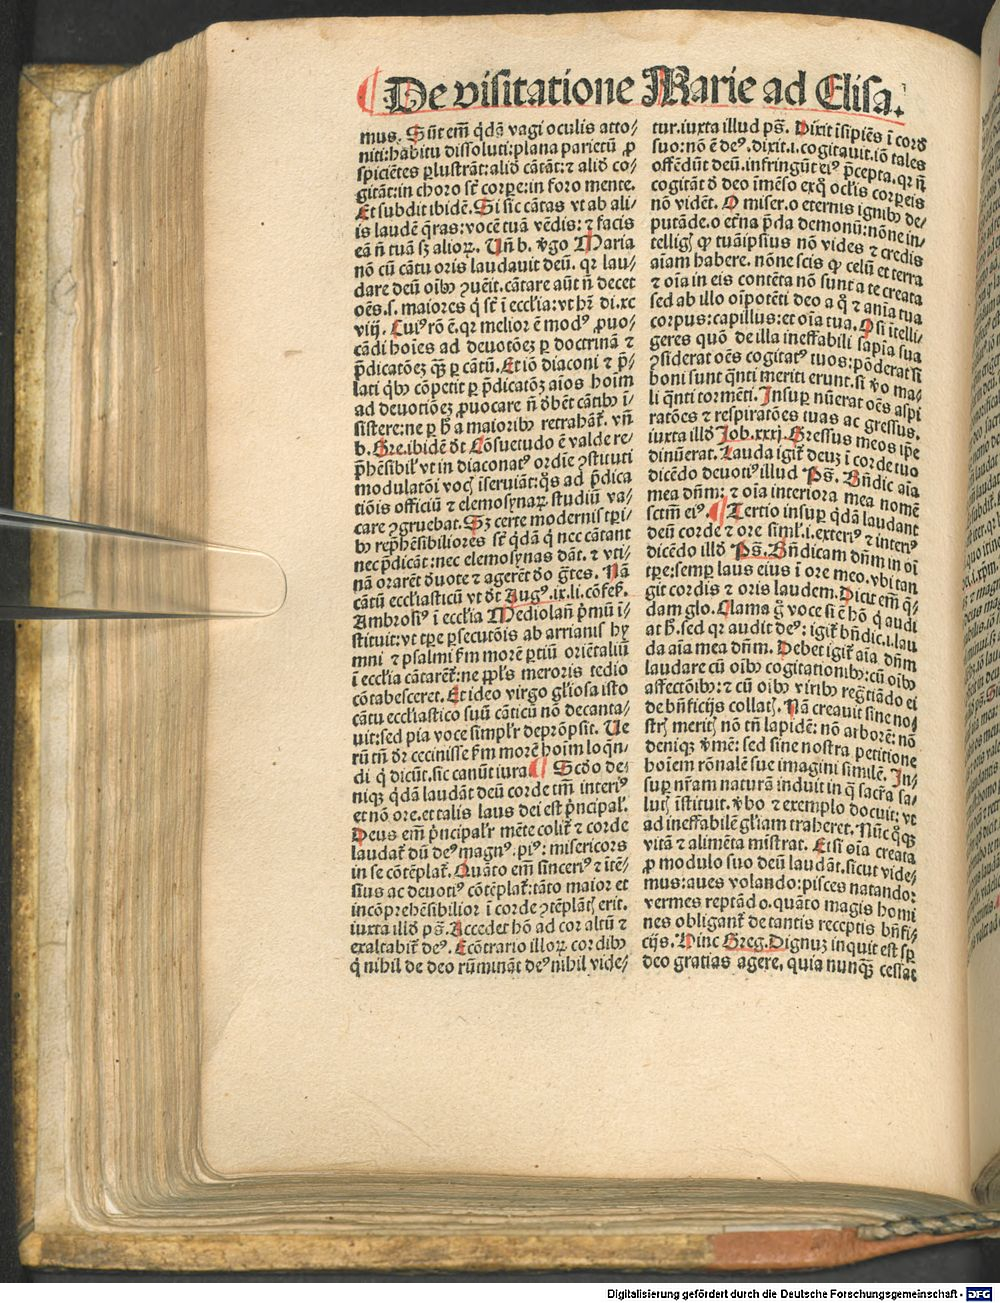 De visitatione Marie ad Elisa.
mus. Sūt em̄ q̄dā vagi oculis atto⸗
niti: habitu dissoluti: plana parietū ꝓ
spiciētes ꝑlustrāt: aliō cātāt: ⁊ aliō co⸗
gitāt: in choro sēt corꝑe: in foro mente.
Et subdit ibidē. Si sic cātas vt ab ali⸗
is laudē q̄ras: vocē tuā vēdis: ⁊ facis
eā n̄ tuā sꝫ alioꝝ. Un̄ b. v̓go Maria
nō cū cātu oris laudauit deū. qꝛ lau⸗
dare deū oībꝰ ꝯuēit. cātare aūt n̄ decet
oēs. s. maiores q̓ sēt ī ecclīa: vt hꝫ di. xc
viij. Cuiꝰ rō ē. qꝛ melior ē modꝰ ꝓuo⸗
cādi hoīes ad deuotōeꝫ ꝑ doctrinā ⁊
p̄dicatōeꝫ qꝫ̄ ꝑ cātū. Et iō diaconi ⁊ p̄⸗
lati qībꝰ cōpetit ꝑ p̄dicatōꝫ aīos hoīm
ad deuotiōeꝫ ꝓuocare n̄ dēbēt cātibꝰ ī⸗
sistere: ne ꝑ h̄ a maioribꝰ retrahāt̄. vn̄
b. Gre. ibidē dt̄ Cōsuetudo ē valde re⸗
p̄hēsibil̓ vt in diaconatꝰ ordīe ꝯstituti
modulatōi vocꝭ īseruiāt: qōs ad p̄dica
tiōis officiū ⁊ elemosynaꝝ studiū va⸗
care ꝯgruebat. Sꝫ certe modernis tꝑi⸗
bꝰ rep̄hēsibiliores sēt q̄dā q̓ nec cātant
nec p̄dicāt: nec elemosynas dāt. ⁊ vti⸗
nā orarēt d̓uote ⁊ agerēt d̓o gr̄tes. Nā
cātū ecclīasticū vt dt̄ Augꝰ. ix. li. cōfes̄.
Ambrosiꝰ ī ecclīa Mediolan̄ p̓mū ī⸗
stituit: vt tꝑe ꝑsecutōis ab arrianis hy
mni ⁊ psalmi s̄m morē ꝑtiū oriētaliū
ī ecclīa cātarēt̄: ne ppl̄s meroris tedio
cōtabesceret. Et ideo virgo gl̓iosa isto
cātu ecclīastico suū cāticū nō decanta⸗
uit: sed pia voce simpl̓r deprōpsit. Ue
rū tn̄ dr̄ cecinisse s̄m morē hoīm loqn̄⸗
di q̓ dicūt. sic canūt iura ¶ Scd̓o de⸗
niqꝫ q̄dā laudāt deū corde tm̄ interiꝰ
et nō ore. et talis laus dei est p̓ncipal̓.
Deus em̄ p̓ncipal̓r mēte colit̄ ⁊ corde
laudat̄ dū deꝰ magnꝰ. piꝰ: misericors
in se cōtēplat̄. Quāto em̄ sinceriꝰ ⁊ ītē⸗
siꝰ ac deuotiꝰ cōtēplat̄: tāto maior et
incōprehēsibilior ī corde ꝯtēplātꝭ erit.
iuxta illō pš. Accedet hō ad cor altū ⁊
exaltabit̄ deꝰ. Ecōtrario illoꝝ cordibꝰ
q̓ nihil de deo rūmināt deꝰ nihil vide⸗
tur. iuxta illud pš. Dixit īsipiēs ī cord̓
suo: nō ē deꝰ. dixit. i. cogitauit. iō tales
offēdūt deū. infringūt eiꝰ p̄cepta. qꝛ n̄
cogitāt d̓ deo īmēso exqͦ oclīs corꝑeis
nō vidēt. O miser. o eternis ignibꝰ de⸗
putāde. o et̓na p̄da demonū: nōne in⸗
telligꝭ ꝙ tuāipsius nō vides ⁊ credis
aīam habere. nōne scis ꝙ celū et terra
⁊ oīa in eis contēta nō sunt a te creata
sed ab illo oīpotēti deo a qͦ ⁊ anīa tua
corpus: capillus: et oīa tua. O si ītelli⸗
geres quō de illa ineffabili sapīa sua
ꝯsiderat oēs cogitatꝰ tuos: pōderat si
boni sunt qn̄ti meriti erunt. si v̓o ma⸗
li qn̄ti tormēti. Insuꝑ nūerat oēs aspi
ratōes ⁊ respiratōes tuas ac gressus.
iuxta illd̓ Job. xxxj. Gressus meos ip̄e
dinūerat. Lauda igit̄ deuꝫ ī corde tuo
dicēdo deuotiꝰ illud Pš. Bn̄dic aīa
mea dn̄m: ⁊ oīa interiora mea nomē
sctm̄ eiꝰ. ¶ Tertio insuꝑ q̄dā laudant
deū corde ⁊ ore siml̓. i. exteriꝰ ⁊ interiꝰ
dicēdo illd̓ Pš. Bn̄dicam dn̄m in oī
tꝑe: semꝑ laus eius ī ore meo. vbi tan
git cordis ⁊ oris laudem. Dicit em̄ q̄⸗
dam glo. Clama gͦ voce si ē hō q̓ audi
at h̓. sed qꝛ audit deꝰ: igit̄ bn̄dic. i. lau
da aīa mea dn̄m. Debet igit̄ aīa dn̄m
laudare cū oībꝰ cogitationibꝰ: cū oībꝰ
affectōibꝰ: ⁊ cū oībꝰ viribꝰ regr̄tiādo ei
de bn̄ficijs collatꝭ. Nā creauit sine nos
strꝭ meritꝭ nō tn̄ lapidē: nō arborē: nō
deniqꝫ v̓mē: sed sine nostra petitione
hoīem rōnalē sue imagini similē. In⸗
suꝑ nr̄am naturā induit in q̄ sacr̄a sa⸗
lutꝭ īstituit. v̓bo ⁊ exemplo docuit: vt
ad ineffabilē gl̓iam traheret. Nūc qͦꝫ
vitā ⁊ alimēta mīstrat. Et si oīa creata
ꝓ modulo suo deū laudāt. sicut vide⸗
mus: aues volando: pisces natando:
vermes reptādo. quāto magis homi
nes obligant̄ de tantis receptis bn̄fi⸗
cijs. Hinc Greg. Dignuꝫ inquit est sꝑ
deo gratias agere, quia nunqꝫ̄ cessat
Digitalisierung gefördert durch die Deutsche Forschungsgemeinschaft - DFG